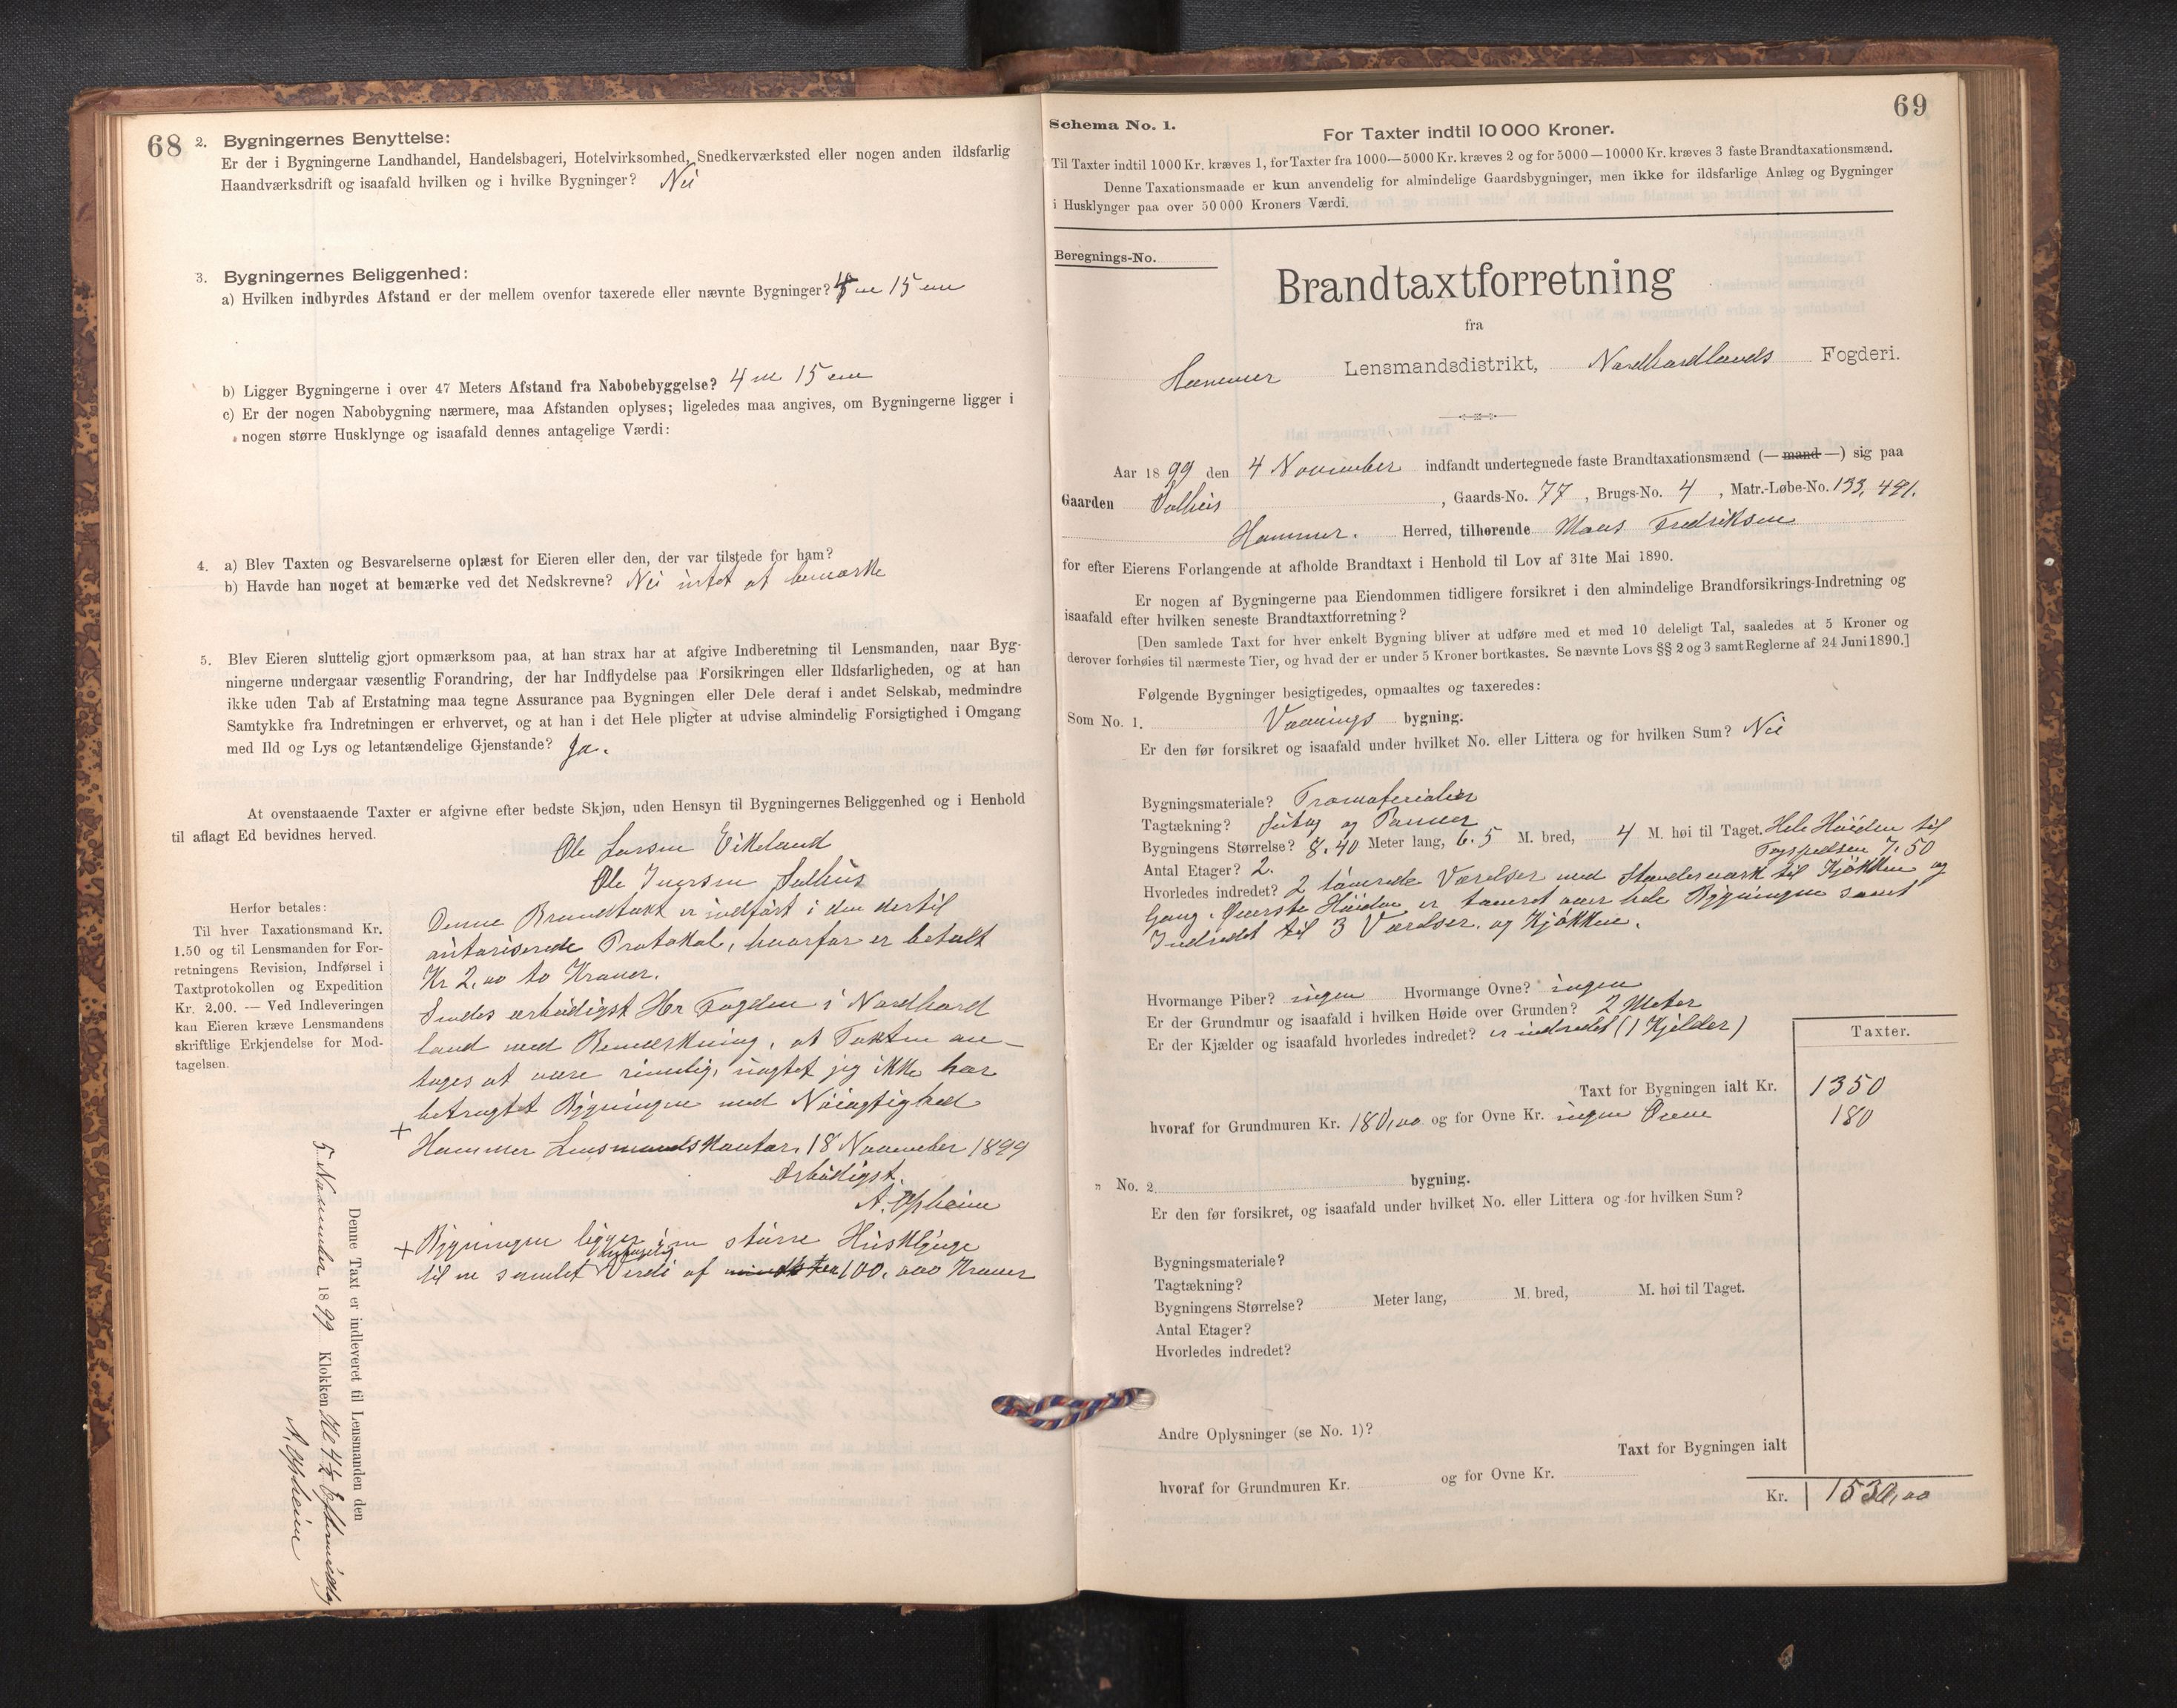 68
2. Bygningernes Benyttelse:
Er der i Bygningerne Landhandel, Handelsbageri, Hotelvirksomhed, Snedkerværksted eller nogen anden ildsfarlig
Haandværksdrift og isaafald hvilken og i hvilke Bygninger? Nei
3. Bygningernes Beliggenhed:
a) Hvilken indbyrdes Afstand er der mellem ovenfor taxerede eller nævnte Bygninger? 4 m 15 cm
b) Ligger Bygningerne i over 47 Meters Afstand fra Nabobebyggelse? 4 m 15 cm
c) Er der nogen Nabobygning nærmere, maa Afstanden oplyses; ligeledes maa angives, om Bygningerne ligger i
nogen større Husklynge og isaafald dennes antagelige Værdi:
4. a) Blev Taxten og Besvarelserne oplæst for Eieren eller den, der var tilstede for ham?
b) Havde han noget at bemærke ved det Nedskrevne? Nei intet at bemærke
5. Blev Eieren sluttelig gjort opmærksom paa, at han strax har at afgive Indberetning til Lensmanden, naar Byg-
ningerne undergaar væsentlig Forandring, der har Indflydelse paa Forsikringen eller Ildsfarligheden, og at han
ikke uden Tab af Erstatning maa tegne Assurance paa Bygningen eller Dele deraf i andet Selskab, medmindre
Samtykke fra Indretningen er erhvervet, og at han i det Hele pligter at udvise almindelig Forsigtighed i Omgang
med Ild og Lys og letantændelige Gjenstande? Ja.
At ovenstaaende Taxter er afgivne efter bedste Skjøn, uden Hensyn til Bygningernes Beliggenhed og i Henhold
til aflagt Ed bevidnes herved.
Ole Larsen Eikeland
Ole Iversen Salhus
Herfor betales:
Til hver Taxationsmand Kr.
1.50 og til Lensmanden for For-
retningens Revision, Indførsel i
Taxtprotokollen og Expedition
Kr. 2.00. — Ved Indleveringen
kan Eieren kræve Lensmandens
skriftlige Erkjendelse for Mod-
tagelsen.
Denne Brandtakt er indført i den dertil
autoriserede Protokol, hvorfor er betalt
Kr 2,00 to Kroner.
Sendes ærbødigst Hr Fogden i Nordhord
land med Bemærkning, at Takten an-
tages at være rimelig, uagtet jeg ikke har
betragtet Bygningen med Nøiagtighed
+
Hammer Lensmandskontor, 18 November 1899
Ærbødigst.
A. Opheim
+ Bygningen ligger i en større Husklynge
til en samlet Verdi af 100,000 Kroner
Denne Taxt er indleveret til Lensmanden den
5 November 1899 Klokken Kl 4½ Eftermiddag
A. Opheim
69
Schema No. 1.
For Taxter indtil 10 000 Kroner.
Til Taxter indtil 1000 Kr. kræves 1, for Taxter fra 1000—5000 Kr. kræves 2 og for 5000—10000 Kr. kræves 3 faste Brandtaxationsmænd.
Denne Taxationsmaade er kun anvendelig for almindelige Gaardsbygninger, men ikke for ildsfarlige Anlæg og Bygninger
i Husklynger paa over 50 000 Kroners Værdi.
Beregnings-No.
Brandtaxtforretning
fra
Hammer Lensmandsdistrikt, Nordhordlands Fogderi.
Aar 1899 den 4 November indfandt undertegnede faste Brandtaxationsmænd (— mand —) sig paa
Gaarden Salhus, Gaards-No. 77, Brugs-No. 4, Matr.-Løbe-No. 133, 491.
Hammer. Herred, tilhørende Mons Fredriksen
for efter Eierens Forlangende at afholde Brandtaxt i Henhold til Lov af 31te Mai 1890.
Er nogen af Bygningerne paa Eiendommen tidligere forsikret i den almindelige Brandforsikrings-Indretning og
isaafald efter hvilken seneste Brandtaxtforretning?
[Den samlede Taxt for hver enkelt Bygning bliver at udføre med et med 10 deleligt Tal, saaledes at 5 Kroner og
derover forhøies til nærmeste Tier, og hvad der er under 5 Kroner bortkastes. Se nævnte Lovs §§ 2 og 3 samt Reglerne af 24 Juni 1890.]
Følgende Bygninger besigtigedes, opmaaltes og taxeredes:
Som No. 1. Vaanings bygning.
Er den før forsikret og isaafald under hvilket No. eller Littera og for hvilken Sum? Nei
Bygningsmateriale? Træmaterialier
Tagtækning? og Panner
Bygningens Størrelse? 8.40 Meter lang, 6.5 M. bred, 4 M. høi til Taget. Hele Høiden til
7,50
Antal Etager? 2.
Hvorledes indredet? 2 tømrede Værelser med Stenderværk til Kjøkken og
Gang. Øverste Høiden er tømret over hele Bygningen samt
Indredet til 3 Værelser og Kjøkken.
Hvormange Piber? ingen Hvormange Ovne? ingen
Er der Grundmur og isaafald i hvilken Høide over Grunden? 2 Meter
Er der Kjælder og isaafald hvorledes indredet? er indredet (1 Kjelder)
Taxter.
Taxt for Bygningen ialt Kr. 1350
hvoraf for Grundmuren Kr. 180,00 og for Ovne Kr. ingen Ovne 180
„ No. 2 bygning.
Er den før forsikret, og isaafald under hvilket No. eller Littera og for hvilken Sum?
Bygningsmateriale?
Tagtækning?
Bygningens Størrelse? Meter lang, M. bred, M. høi til Taget.
Antal Etager?
Hvorledes indredet?
Andre Oplysninger (se No. 1)?
Taxt for Bygningen ialt
hvoraf for Grundmuren Kr. og for Ovne Kr.
Kr. 1530,00